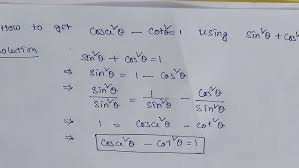 How to get cosec²θ - cot²θ = 1 using sin²θ + cos²
solution
sin²θ + cos²θ = 1
⇒ sin²θ = 1 - cos²θ
⇒ sin²θ/sin²θ = 1/sin²θ - cos²θ/sin²θ
⇒ 1 = cosec²θ - cot²θ
⇒ cosec²θ - cot²θ = 1